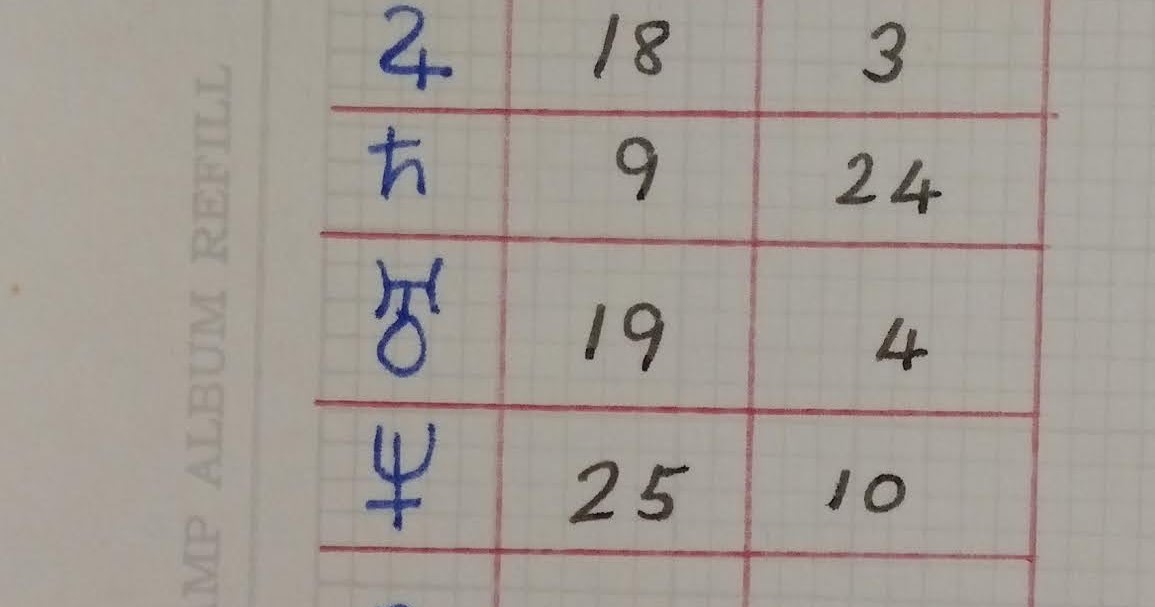 ♃ 18 3
♄ 9 24
♅ 19 4
♆ 25 10
AMP ALBUM REFILL